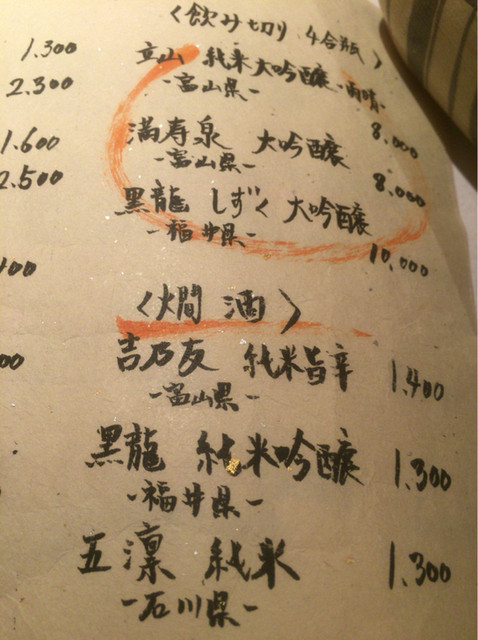 〈飲み切り 4合瓶〉
1.300
立山 純米大吟醸 -雨晴-
2.300
-富山県-
8.000
1.600
満寿泉 大吟醸
2.500
-富山県-
8.000
黒龍 しずく 大吟醸
-福井県-
10,000
400
〈燗酒〉
00
吉乃友 純米旨辛 1.400
-富山県-
黒龍 純米吟醸 1.300
-福井県-
五凛 純米 1.300
-石川県-